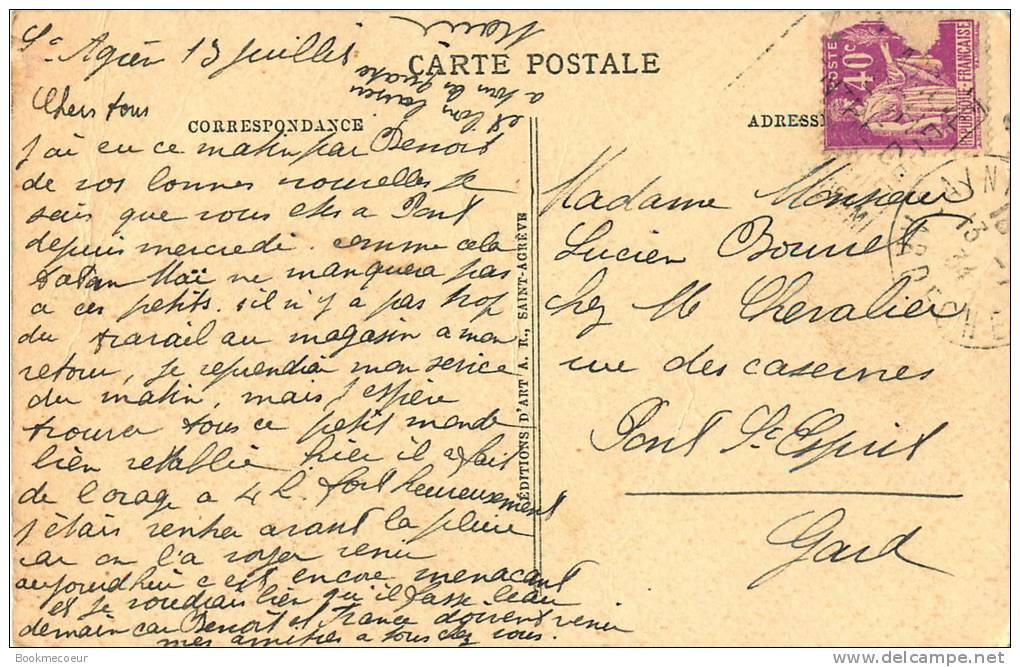 St Agrève 13 Juillet
CARTE POSTALE
CORRESPONDANCE
ADRESSE
Chers tous
J'ai eu ce matin par Benoit
de vos bonnes nouvelles je
sais que vous etes a Pont
depuis mercredi. comme cela
Maï ne manquera pas
a ces petits. s'il n'y a pas trop
du travail au magasin a mon
retour, je reprendrai mon service
du matin, mais j'espère
trouver tous ce petit monde
bien retablie hier il a fait
de l'orage a 4 h. fort heureusement
j'étais rentrer avant la pluie
car on l'a voyer venir
aujourd'hui c'est encore menacant
et je voudrais bien qu'il fasse beau
demain car Benoit et France doivent venir
mes amities a tous chez vous.
et bon baiser
a tous les quatre
Madame Monsieur
Lucien Bourret
chez M Chevalier
rue des casernes
Pont St Esprit
Gard
ÉDITIONS D'ART A. R., SAINT-AGRÈVE
POSTE
40c
REPUBLIQUE-FRANÇAISE
ARDECHE
Bookmecoeur
delcampe.net